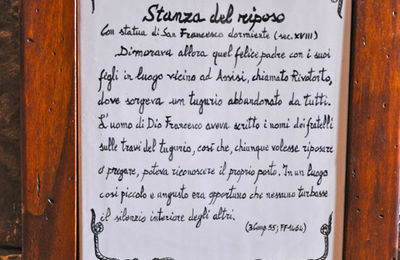 Stanza del riposo
Con statua di San Francesco dormiente (sec. XVIII)
Dimorava allora quel felice padre con i suoi
figli in luogo vicino ad Assisi, chiamato Rivotorto,
dove sorgeva un tugurio abbandonato da tutti.
L'uomo di Dio Francesco aveva scritto i nomi dei fratelli
sulle travi del tugurio, così che, chiunque volesse riposare
o pregare, poteva riconoscere il proprio posto. In un luogo
così piccolo e angusto era opportuno che nessuno turbasse
il silenzio interiore degli altri.